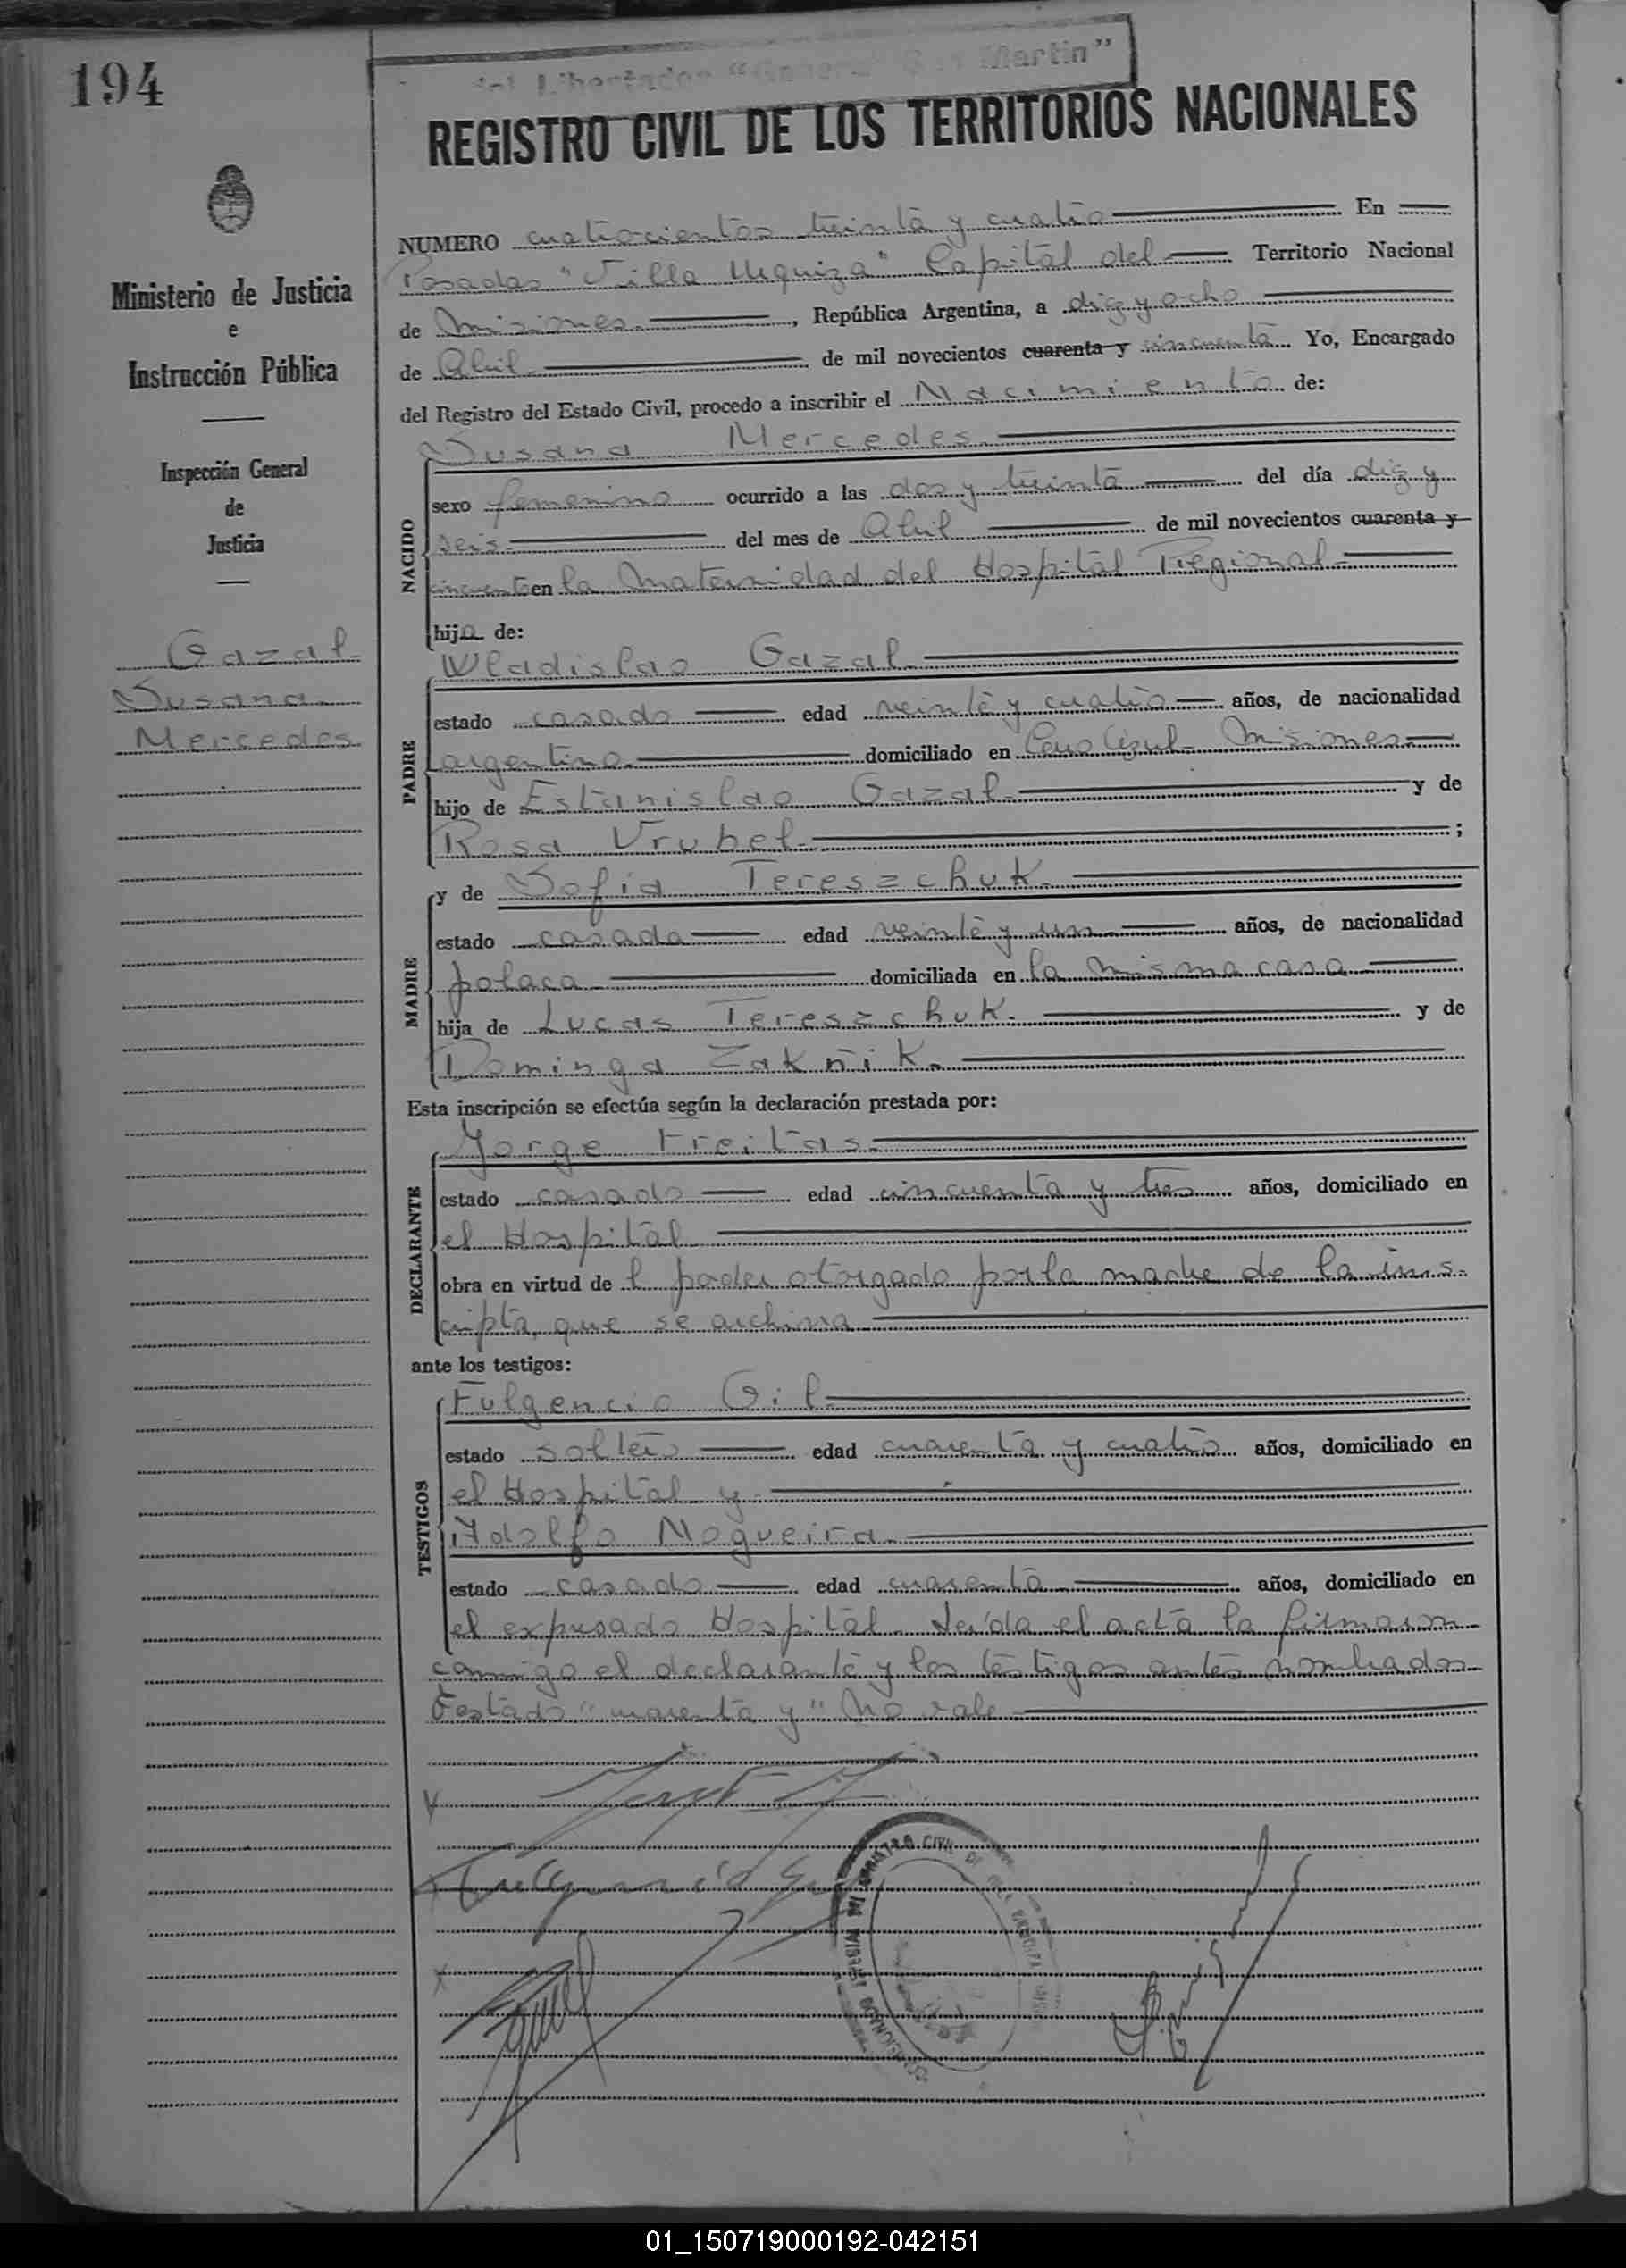 194
del Libertador "General San Martin"
REGISTRO CIVIL DE LOS TERRITORIOS NACIONALES
Ministerio de Justicia
e
Instrucción Pública
Inspección General
de
Justicia
Gazal
Susana
Mercedes
NUMERO cuatrocientos treinta y cuatro En
Posadas "Villa Urquiza" Capital del Territorio Nacional
de Misiones, República Argentina, a diez y ocho
de Abril de mil novecientos cuarenta y cincuenta. Yo, Encargado
del Registro del Estado Civil, procedo a inscribir el Nacimiento de:
NACIDO
Susana Mercedes
sexo femenino ocurrido a las dos y treinta del día diez y
seis del mes de Abril de mil novecientos cuarenta y
cincuenta en la Maternidad del Hospital Regional
hija de:
PADRE
Wladislao Gazal
estado casado edad veinte y cuatro años, de nacionalidad
argentino domiciliado en Cerro Azul - Misiones
hijo de Estanislao Gazal y de
Rosa Vrubel;
MADRE
y de Sofia Tereszchuk
estado casada edad veinte y un años, de nacionalidad
polaca domiciliada en la misma casa
hija de Lucas Tereszchuk y de
Dominga Zakñik.
Esta inscripción se efectúa según la declaración prestada por:
DECLARANTE
Jorge Freitas
estado casado edad cincuenta y tres años, domiciliado en
el Hospital
obra en virtud de l poder otorgado por la madre de la ins-
cripta, que se archiva
ante los testigos:
TESTIGOS
Fulgencio Gil
estado soltero edad cuarenta y cuatro años, domiciliado en
el Hospital y
Adolfo Nogueira
estado casado edad cuarenta años, domiciliado en
el expresado Hospital. Leída el acta la firmaron
conmigo el declarante y los testigos antes nombrados
Testado "cuarenta y" No vale
Fulgencio Gil
01_150719000192-042151